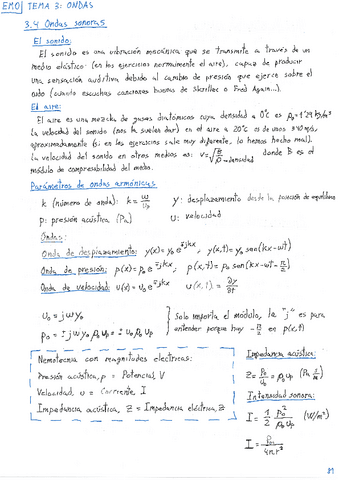 EMO| TEMA 3: ONDAS
3.4 Ondas sonoras
El sonido:
El sonido es una vibración mecánica que se transmite a través de un
medio elástico (en los ejercicios normalmente el aire), capaz de producir
una sensación auditiva debido al cambio de presión que ejerce sobre el
oído (cuando escuchas canciones buenas de Skrillex o Fred Again...).
El aire:
El aire es una mezcla de gases diatómicos cuya densidad a 0°C es ρ₀=1'29 kg/m³
La velocidad del sonido (nos la suelen dar) en el aire a 20°C es de unos 340 m/s,
aproximadamente (si en los ejercicios sale muy diferente, lo hemos hecho mal).
La velocidad del sonido en otros medios es: v=√(B/ρ) → densidad donde B es el
módulo de compresibilidad del medio.
Parámetros de ondas armónicas
k (número de onda): k = w/υp y: desplazamiento desde la posición de equilibrio
p: presión acústica (Pa) υ: velocidad
Ondas:
Onda de desplazamiento: y(x) = y₀ e^∓jkx ; y(x,t) = y₀ sen(kx-wt)
Onda de presión: p(x) = p₀ e^∓jkx ; p(x,t) = p₀ sen(kx-wt-π/2)
Onda de velocidad: υ(x) = υ₀ e^∓jkx υ(x,t) = ∂y/∂t
υ₀ = jwy₀
p₀ = ± jwy₀ρ₀υp = ± υ₀ρ₀υp
} Solo importa el módulo, la "j" es para
entender porque hay -π/2 en p(x,t)
Nemotecnia con magnitudes eléctricas:
Presión acústica, p = Potencial, V
Velocidad, υ = Corriente, I
Impedancia acústica, Z = Impedancia eléctrica, Z
Impedancia acústica:
Z = p₀/υ₀ = ρ₀υp
Intensidad sonora:
I = 1/2 p₀²/ρ₀υp (W/m²)
I = 4πr²